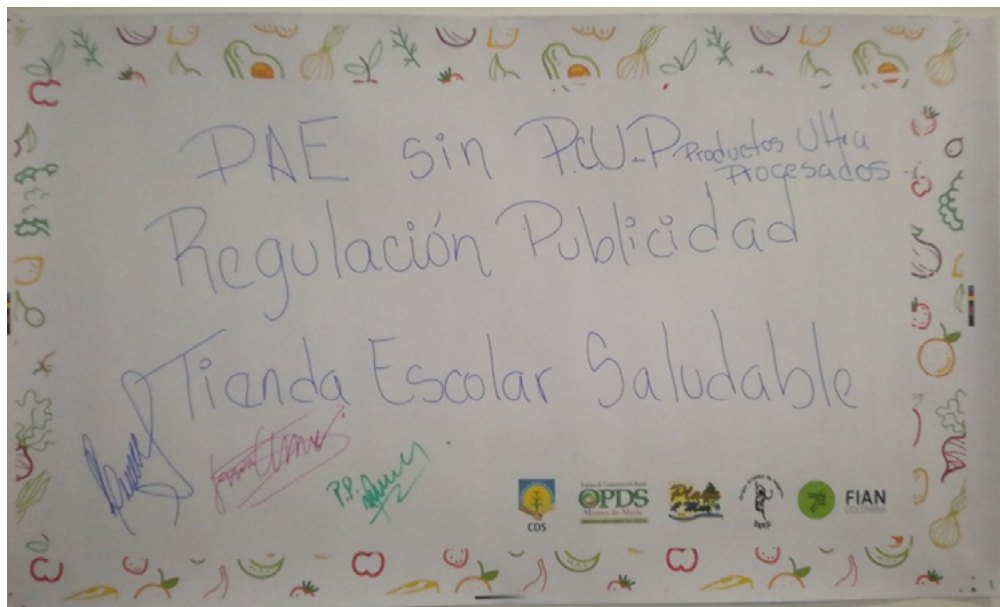 PAE sin P.C.U-P Productos Ultra
Procesados
Regulación Publicidad
Tienda Escolar Saludable
P.P.
CDS
OPDS
Montes de María
Playa
FIAN
COLOMBIA